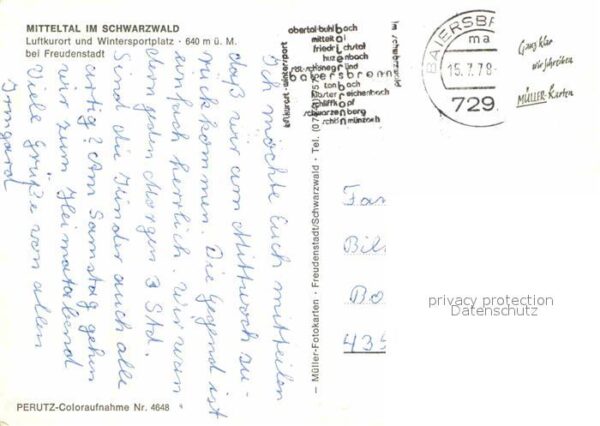 MITTELTAL IM SCHWARZWALD
Luftkurort und Wintersportplatz · 640 m ü. M.
bei Freudenstadt
Ich möchte Euch mitteilen
daß wir am Mittwoch zu-
rückkommen. Die Gegend ist
einfach herrlich. Wir wan-
dern jeden Morgen 3 Std.
Sind die Kinder auch alle
artig? Am Samstag gehen
wir zum Heimatabend
Viele Grüße von allen
Irmgard
PERUTZ-Coloraufnahme Nr. 4648
— Müller-Fotokarten · Freudenstadt/Schwarzwald · Tel.
luftkurort-wintersport
obertal-buhlbach
mitteltal
friedrichstal
huzenbach
röt-schönegründ
baiersbronn
tonbach
klosterreichenbach
schliffkopf
schwarzenberg
schönmünzach
im schwarzwald
BAIERSB
ma
15.7.78
729
Ganz klar
wir schreiben
MÜLLER-Karten
Fam
Bil
Bo
435
privacy protection
Datenschutz